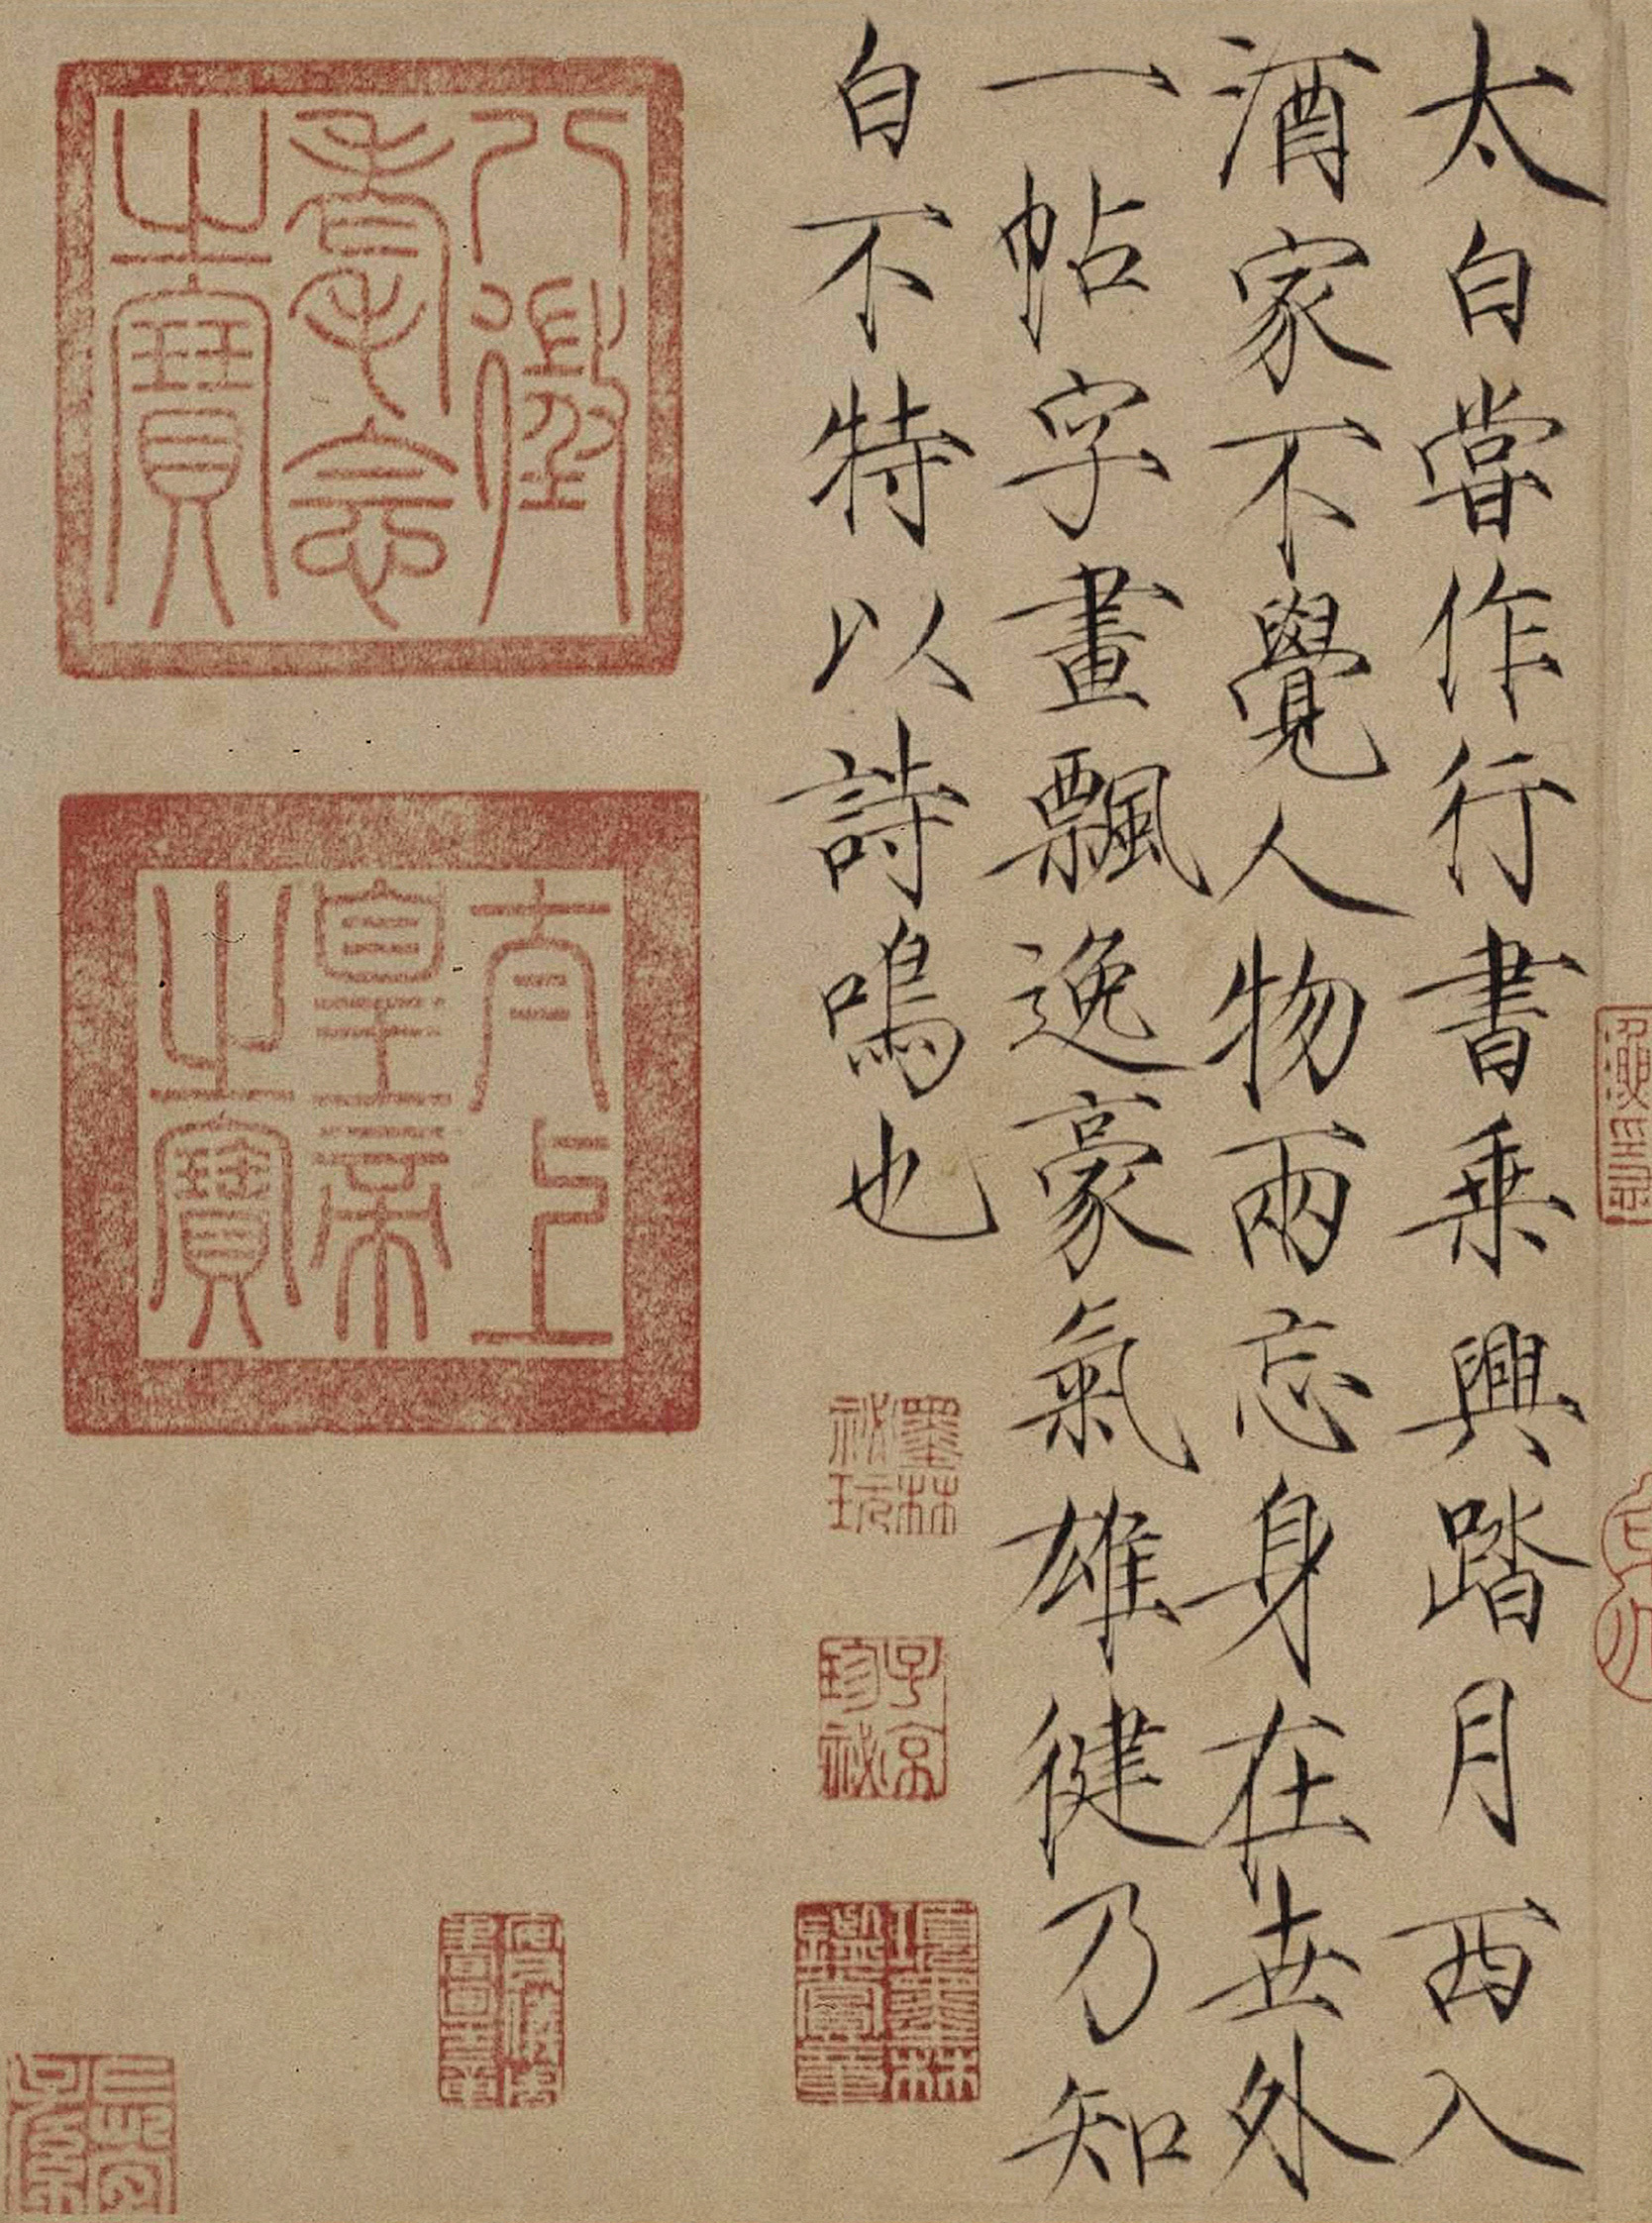 太白嘗作行書乘興踏月西入
酒家不覺人物兩忘身在世外
一帖字畫飄逸豪氣雄健乃知
白不特以詩鳴也
墨林秘玩
子京珍秘
項墨林鑑賞章
八徵耄念之寶
太上皇帝之寶
安儀周書畫之章